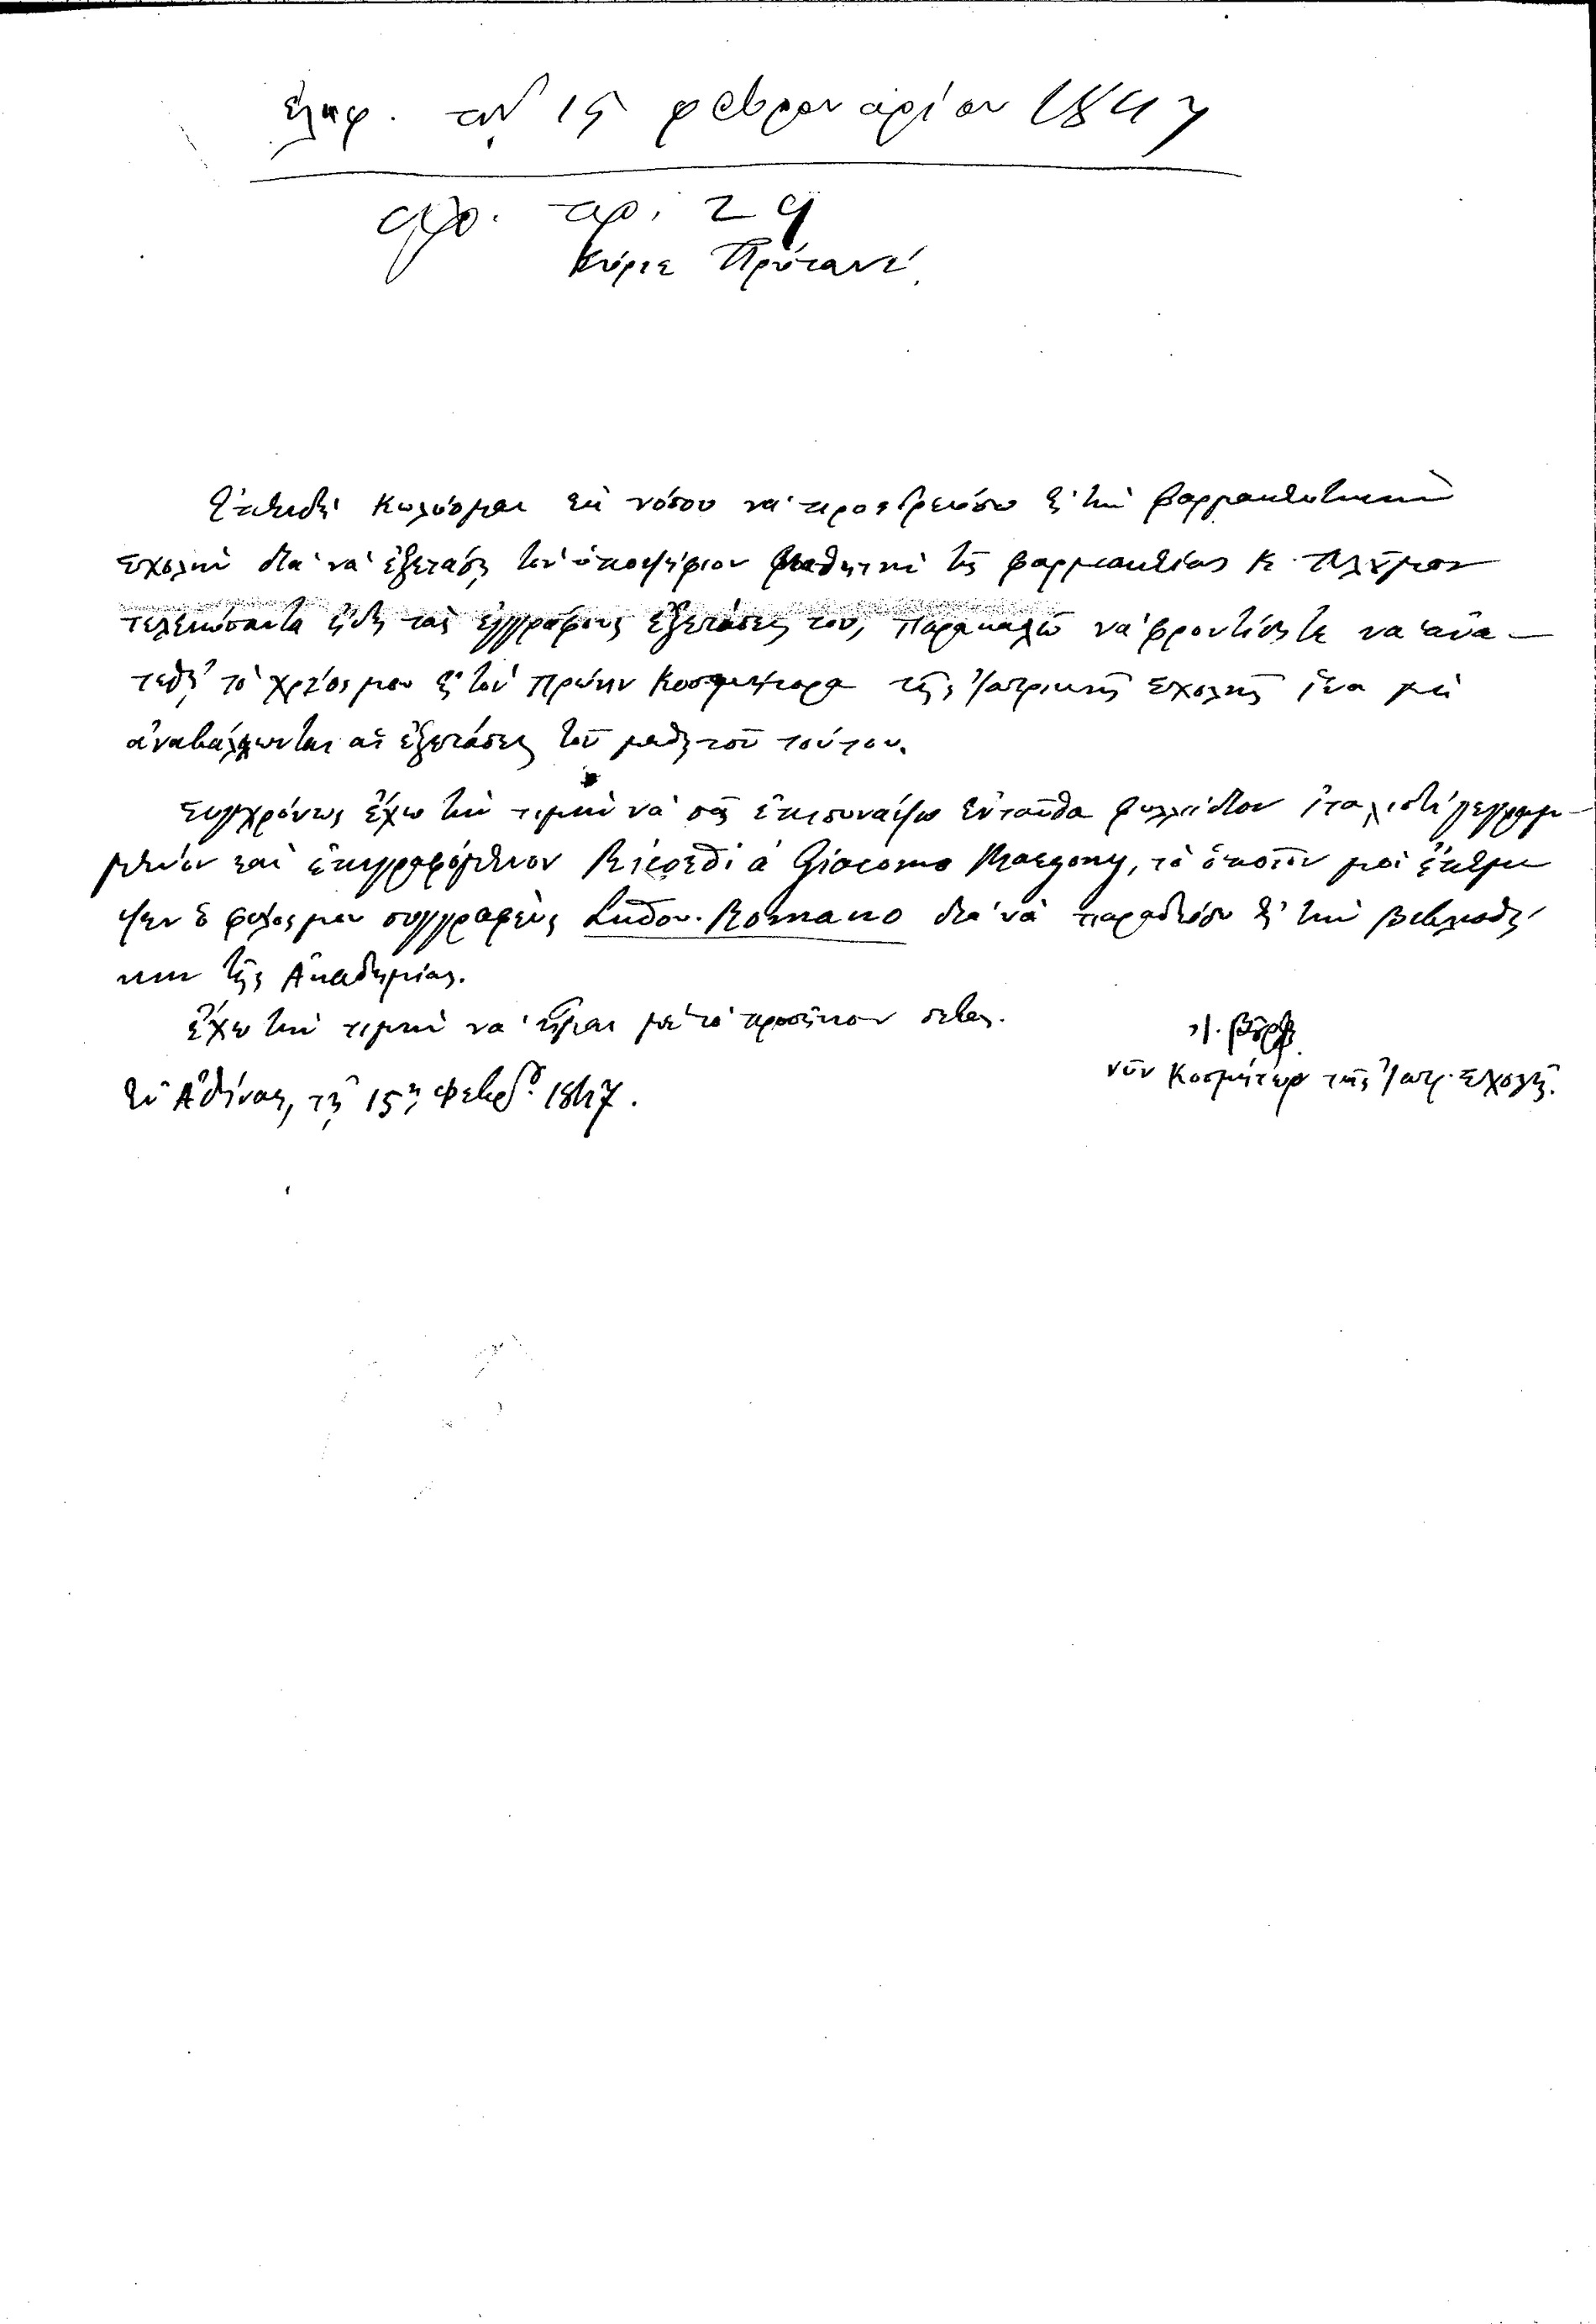 ἐλήφ. τῇ 15 φεβρουαρίου 1847
ἀρ. πρ. 29
Κύριε Πρύτανι!
Ἐπειδὴ κωλύομαι ἐκ νόσου νὰ προεδρεύσω εἰς τὴν φαρμακευτικὴν
σχολὴν διὰ νὰ ἐξετάσῃ τὸν ὑποψήφιον μαθητὴν τῆς φαρμακείας Κ.
τελειώσαντα ἤδη τὰς ἐγγράφους ἐξετάσεις του, παρακαλῶ νὰ φροντίσητε νὰ ἀνα-
τεθῇ τὸ χρέος μου εἰς τὸν πρώην Κοσμήτορα τῆς Ἰατρικῆς Σχολῆς ἵνα μὴ
ἀναβάλλωνται αἱ ἐξετάσεις τοῦ μαθητοῦ τούτου.
Συγχρόνως ἔχω τὴν τιμὴν νὰ σᾶς ἐπισυνάψω ἐνταῦθα φυλλάδιον ἰταλιστὶ γεγραμ-
μένον καὶ ἐπιγραφόμενον Ricordi a Giacomo, τὸ ὁποῖον μοὶ ἔπεμ
ψεν ὁ φίλος μου συγγραφεὺς Ludov. Romano διὰ νὰ παραδώσω εἰς τὴν βιβλιοθή
κην τῆς Ἀκαδημίας.
Ἔχω τὴν τιμὴν νὰ ἦμαι μὲ τὸ προσῆκον σέβας.
νῦν Κοσμήτωρ τῆς Ἰατρ. Σχολῆς.
Ἐν Ἀθήναις, τῇ 15ῃ Φεβρ. 1847.